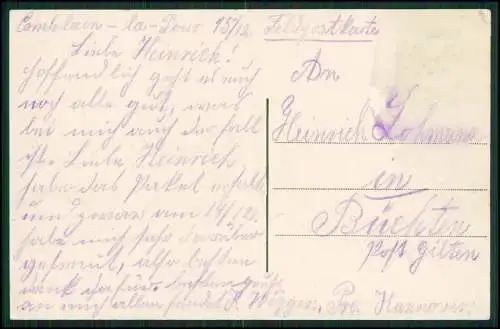 Comblain-la-Tour 15/12.
Feldpostkarte
Liebe Heinrich!
Hoffendlich geht es euch
noch alle gut, was
bei mir auch der fall
ist. Liebe Heinrich
habe das Paket erhalt.
und zwar am 14/12.
habe mich sehr darüber
gefreut, also besten
dank dafür. besten grüße
an euch allen sendet
An
Heinrich Lohmann
in
Büchten
Post Gilten
Prv. Hannover.